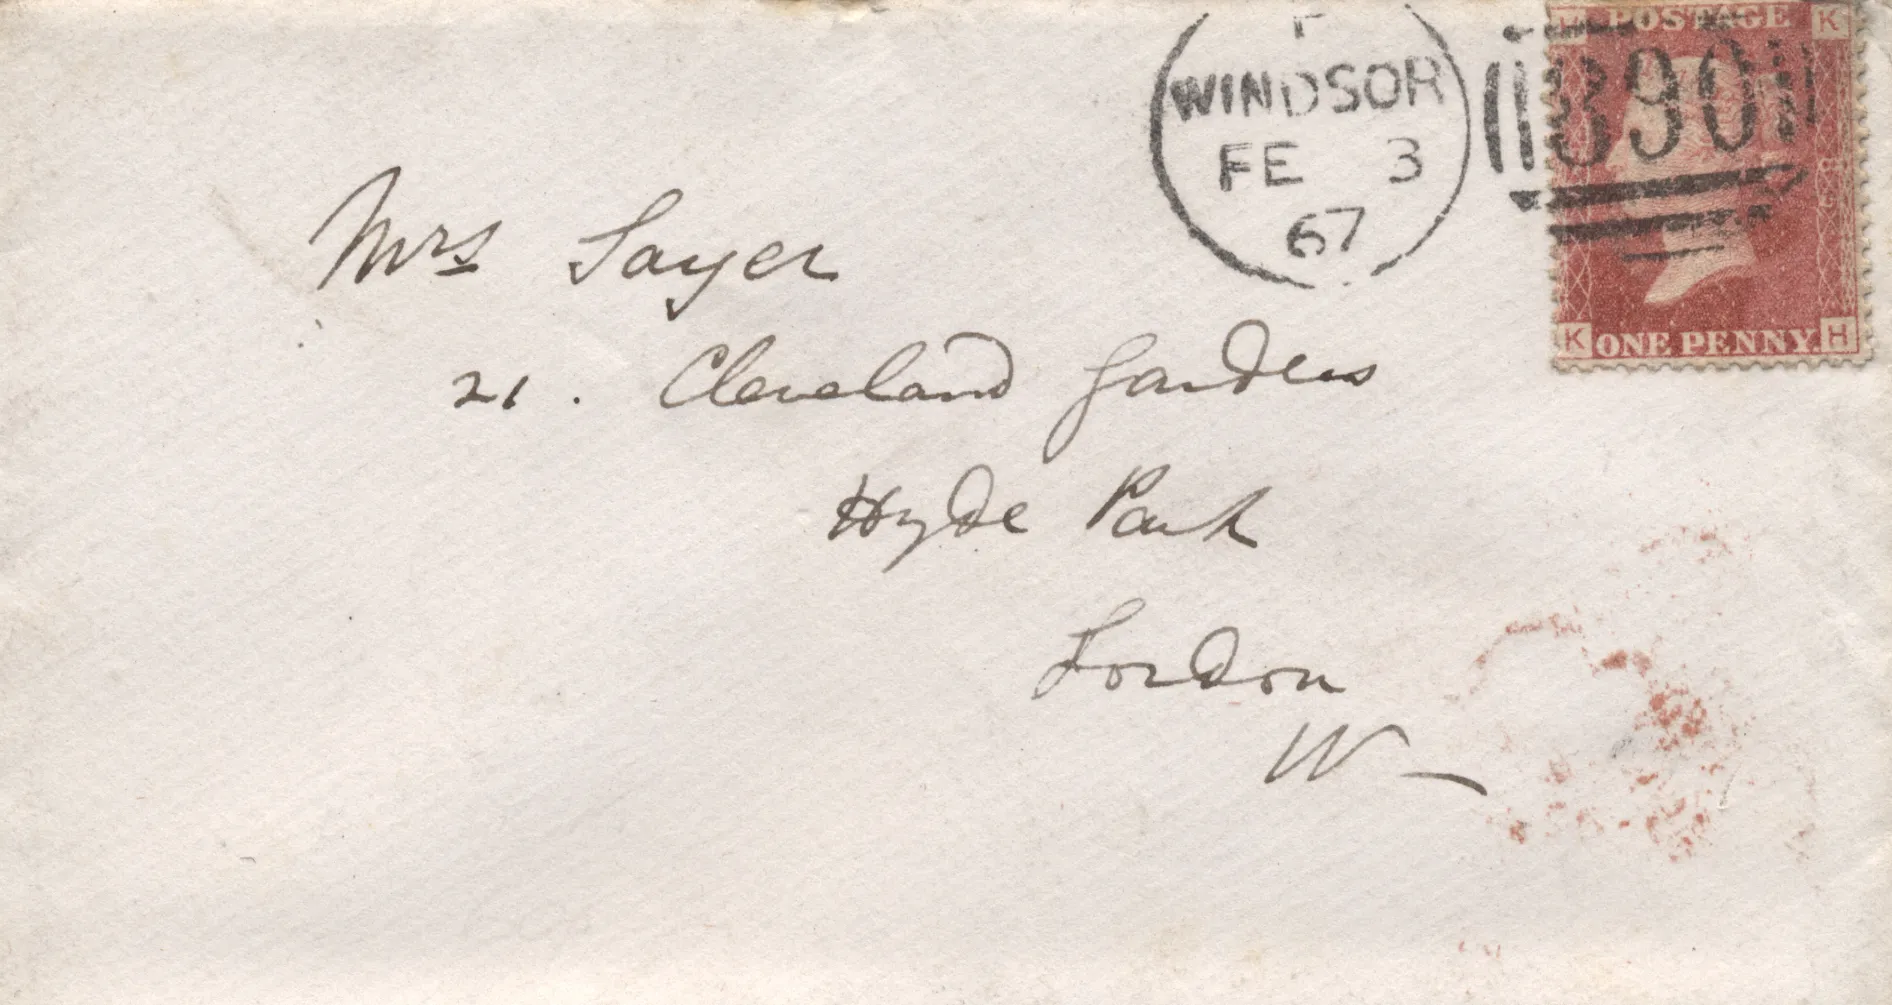 F
WINDSOR
FE 3
67
890
H POSTAGE K
K ONE PENNY. H
Mrs Sayer
21. Cleveland Gardens
Hyde Park
London
W